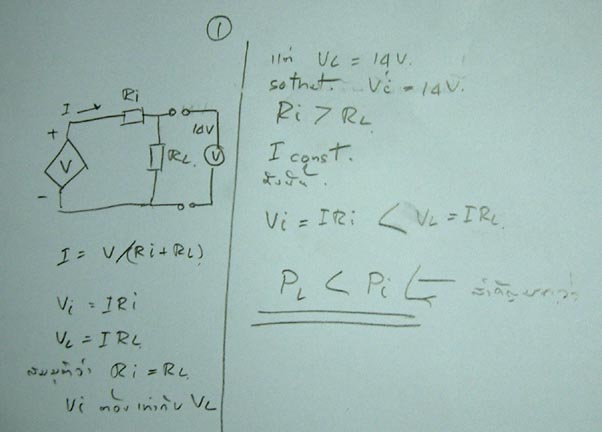 1
I → Ri
+
V
-
14V
V
RL
I = V/(Ri+RL)
Vi = IRi
VL = IRL
สมมุติว่า Ri = RL
Vi ต้องเท่ากับ VL
แต่ VL = 14V.
so that. Vi = 14V.
Ri > RL
I const.
ดังนั้น.
Vi = IRi < VL = IRL
PL < Pi ⇐